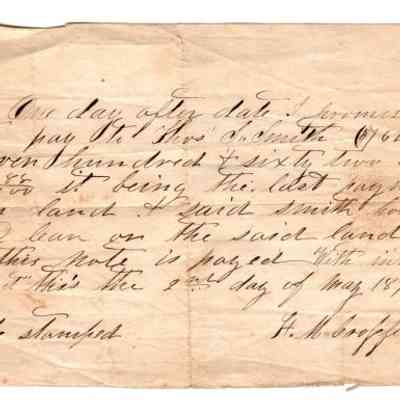 One day after date I promis
pay to Thos J. Smith
ven hundred & sixty two
it being the last paym
land & said smith ho
lean on the said land
this note is payed With in
this the 2nd day of May 18
stamped
H. M.